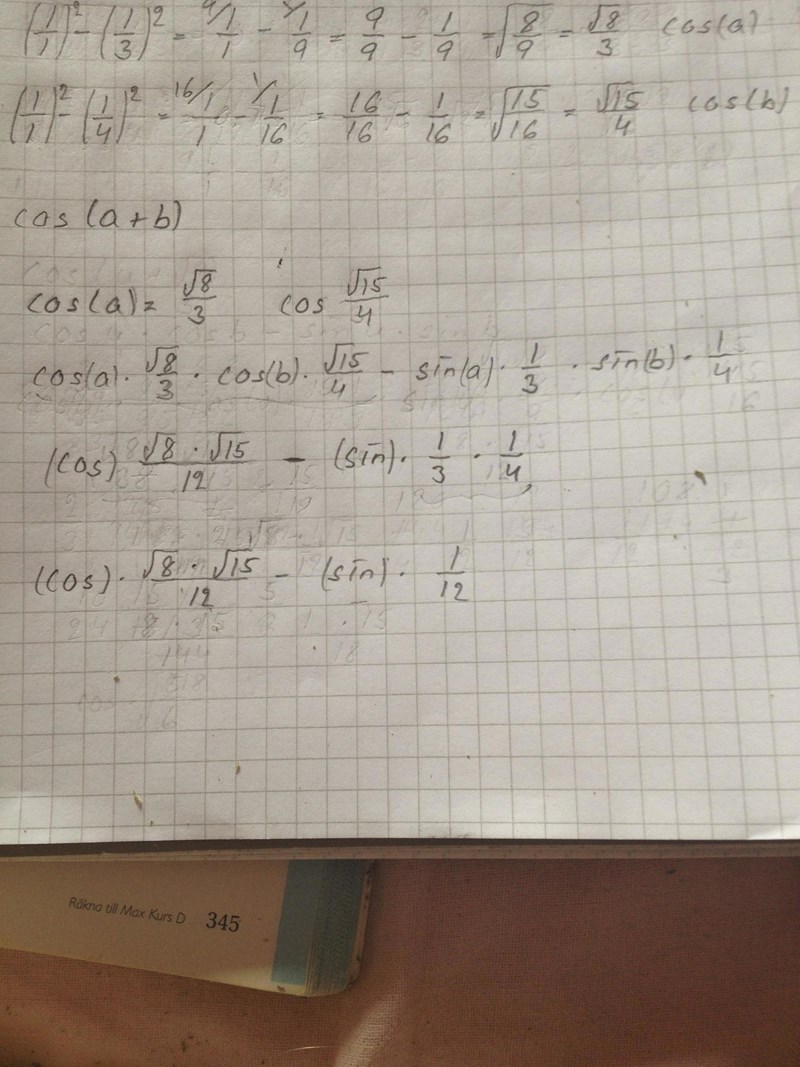 (1/1)² - (1/3)² = 9/1/1 - 1/1/9 = 9/9 - 1/9 = √8/9 = √8/3 cos(a)
(1/1)² - (1/4)² = 16/1/1 - 1/1/16 = 16/16 - 1/16 = √15/16 = √15/4 cos(b)
cos (a+b)
cos(a) = √8/3 cos √15/4
cos(a) · √8/3 · cos(b) · √15/4 - sin(a) · 1/3 · sin(b) · 1/4
(cos) √8 · √15/12 - (sin) · 1/3 · 1/4
(cos) · √8 · √15/12 - (sin) · 1/12
Räkna till Max Kurs D 345